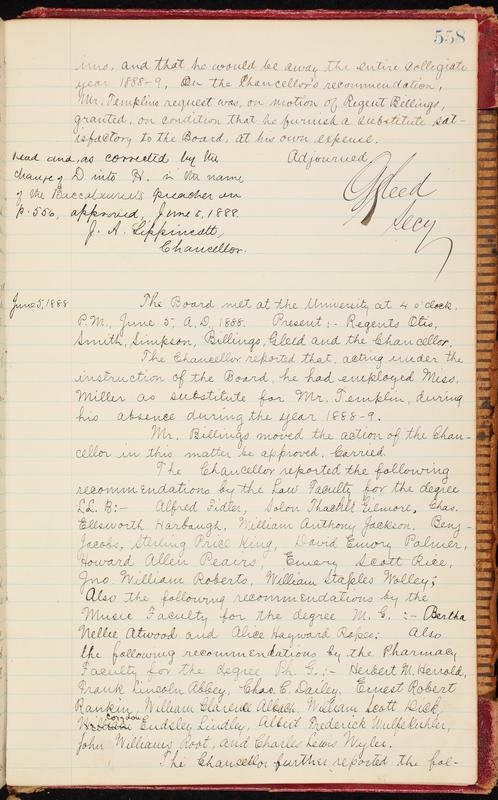 558
imo, and that he would be away the entire collegiate
year 1888-9, On the Chancellor's recommendation,
Mr. Templins request was, on motion of Regent Billings,
granted, on condition that he furnish a substitute sat-
isfactory to the Board, at his own expense.
Adjourned
Read and, as corrected by the
change of D into H. in the name
of the Baccalaureate preacher on
p. 556, approved, June 5, 1888.
J. A. Lippincott,
Chancellor.
Gleed
Secy
June 5, 1888
The Board met at the University at 4 o'clock
P.M., June 5, A.D, 1888. Present:- Regents Otis,
Smith, Simpson, Billings, Gleed and the Chancellor.
The Chancellor reported that, acting under the
instruction of the Board, he had employed Miss.
Miller as substitute for Mr. Templin, during
his absence during the year 1888-9.
Mr. Billings moved the action of the Chan-
cellor in this matter be approved. Carried.
The Chancellor reported the following
recommendations by the Law Faculty for the degree
LL. B:- Alfred Fidler, Solon Thacher Gilmore, Chas.
Ellsworth Harbaugh, William Anthony Jackson, Benj-
Jacobs, Sterling Price King, David Emory Palmer,
Howard Allen Peairs, Emery Scott Rice,
Jno. William Roberts, William Staples Wolley;
Also the following recommendations by the
Music Faculty for the degree M. G. :- Bertha
Nellie Atwood and Alice Hayward Ropes: Also
the following recommendations by the Pharmacy
Faculty for the degree Ph. G.:- Herbert M. Herrold,
Frank Lincoln Abbey, Chas. C. Dailey, Ernest Robert
Rankin, William Clarence William Scott Dick,
Corydon
Lindley, Albert Frederick Wulfekuhler,
John Williams Root, and Charles Lewis Wyler.
The Chancellor further reported the fol-